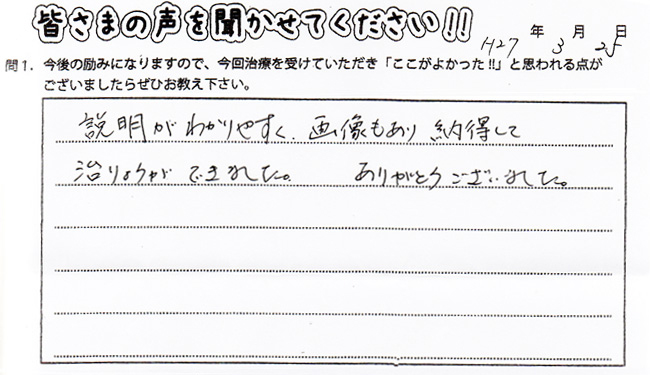 皆さまの声を聞かせてください!!
H27年3月25日
問1. 今後の励みになりますので、今回治療を受けていただき「ここがよかった!!」と思われる点が
ございましたらぜひお教え下さい。
説明がわかりやすく、画像もあり納得して
治りょうができました。 ありがとうございました。